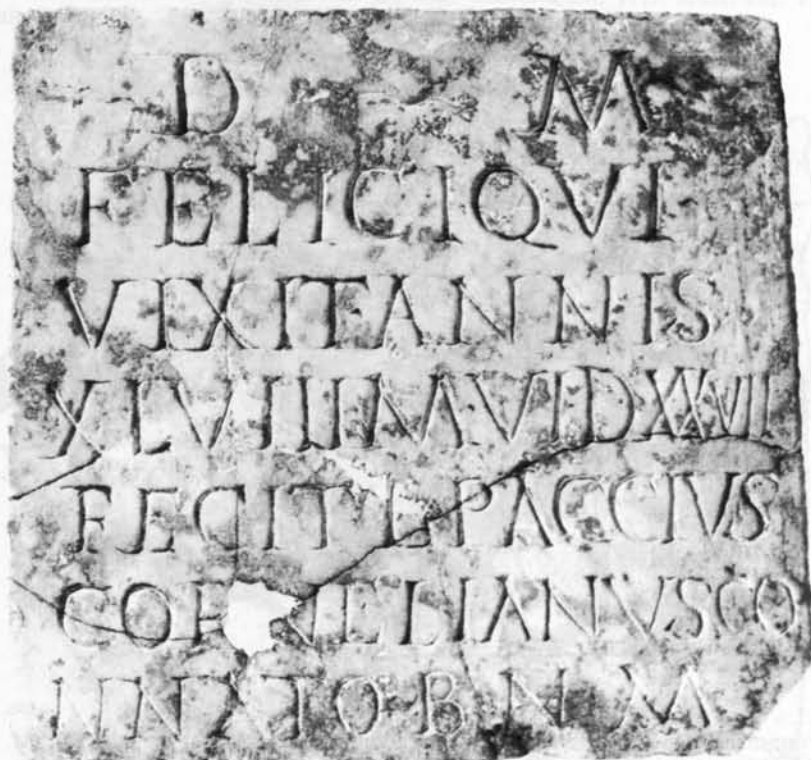 D M
FELICI QVI
VIXIT ANNIS
XLVIII M VI D XXVII
FECIT L PACCIVS
CORNELIANVS CO
NNATO B N M